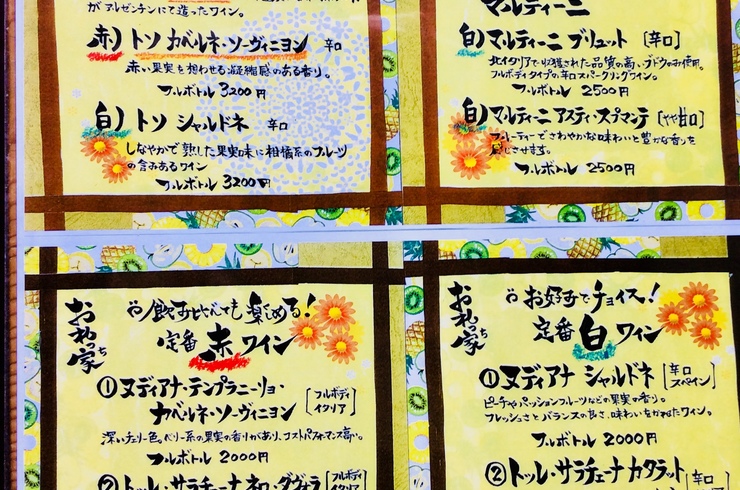 がアルゼンチンにて造ったワイン。
赤) トソ カベルネ・ソーヴィニヨン 辛口
赤い果実を想わせる凝縮感のある香り。
フルボトル 3200円
白) トソ シャルドネ 辛口
しなやかで熟した果実味に柑橘系のフルーツ
の含みあるワイン
フルボトル 3200円
マルティーニ
白) マルティーニ ブリュット [辛口]
北イタリアで収穫された品質の高いブドウのみ使用。
フルボディタイプの辛口スパークリングワイン。
フルボトル 2500円
白) マルティーニ アスティ・スプマンテ [やや甘口]
フルーティーでさわやかな味わいと豊かな香りを
感じさせます。
フルボトル 2500円
おれっち家
飲み比べても楽しめる!
定番 赤 ワイン
① ヌディアナ・テンプラニーリョ・
カベルネ・ソーヴィニヨン [フルボディ イタリア]
深いチェリー色。ベリー系の果実の香りがあり、コストパフォーマンス高い。
フルボトル 2000円
② トッレ・サラチェーナ ネロ・ダヴォラ [フルボディ イタリア]
おれっち家
お好みでチョイス!
定番 白 ワイン
① ヌディアナ シャルドネ [辛口 スペイン]
ピーチやパッションフルーツなどの果実の香り。
フレッシュさとバランスの良さ、味わいをかねたワイン。
フルボトル 2000円
② トッレ・サラチェーナ カタラット